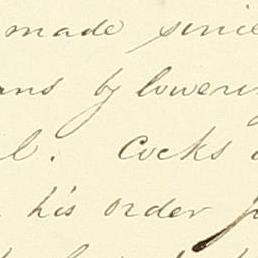 made since
ans by lowerin
l. Cocks
his order